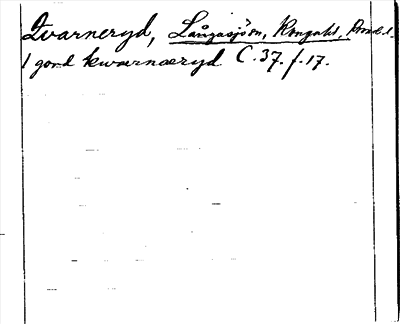 Qvarneryd, Långasjön, Konga hd,
1 gord kwarnæryd C. 37. f. 17.